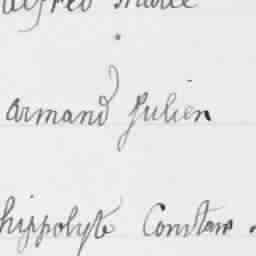 alfred
Armand Julien
hippolyte Constant